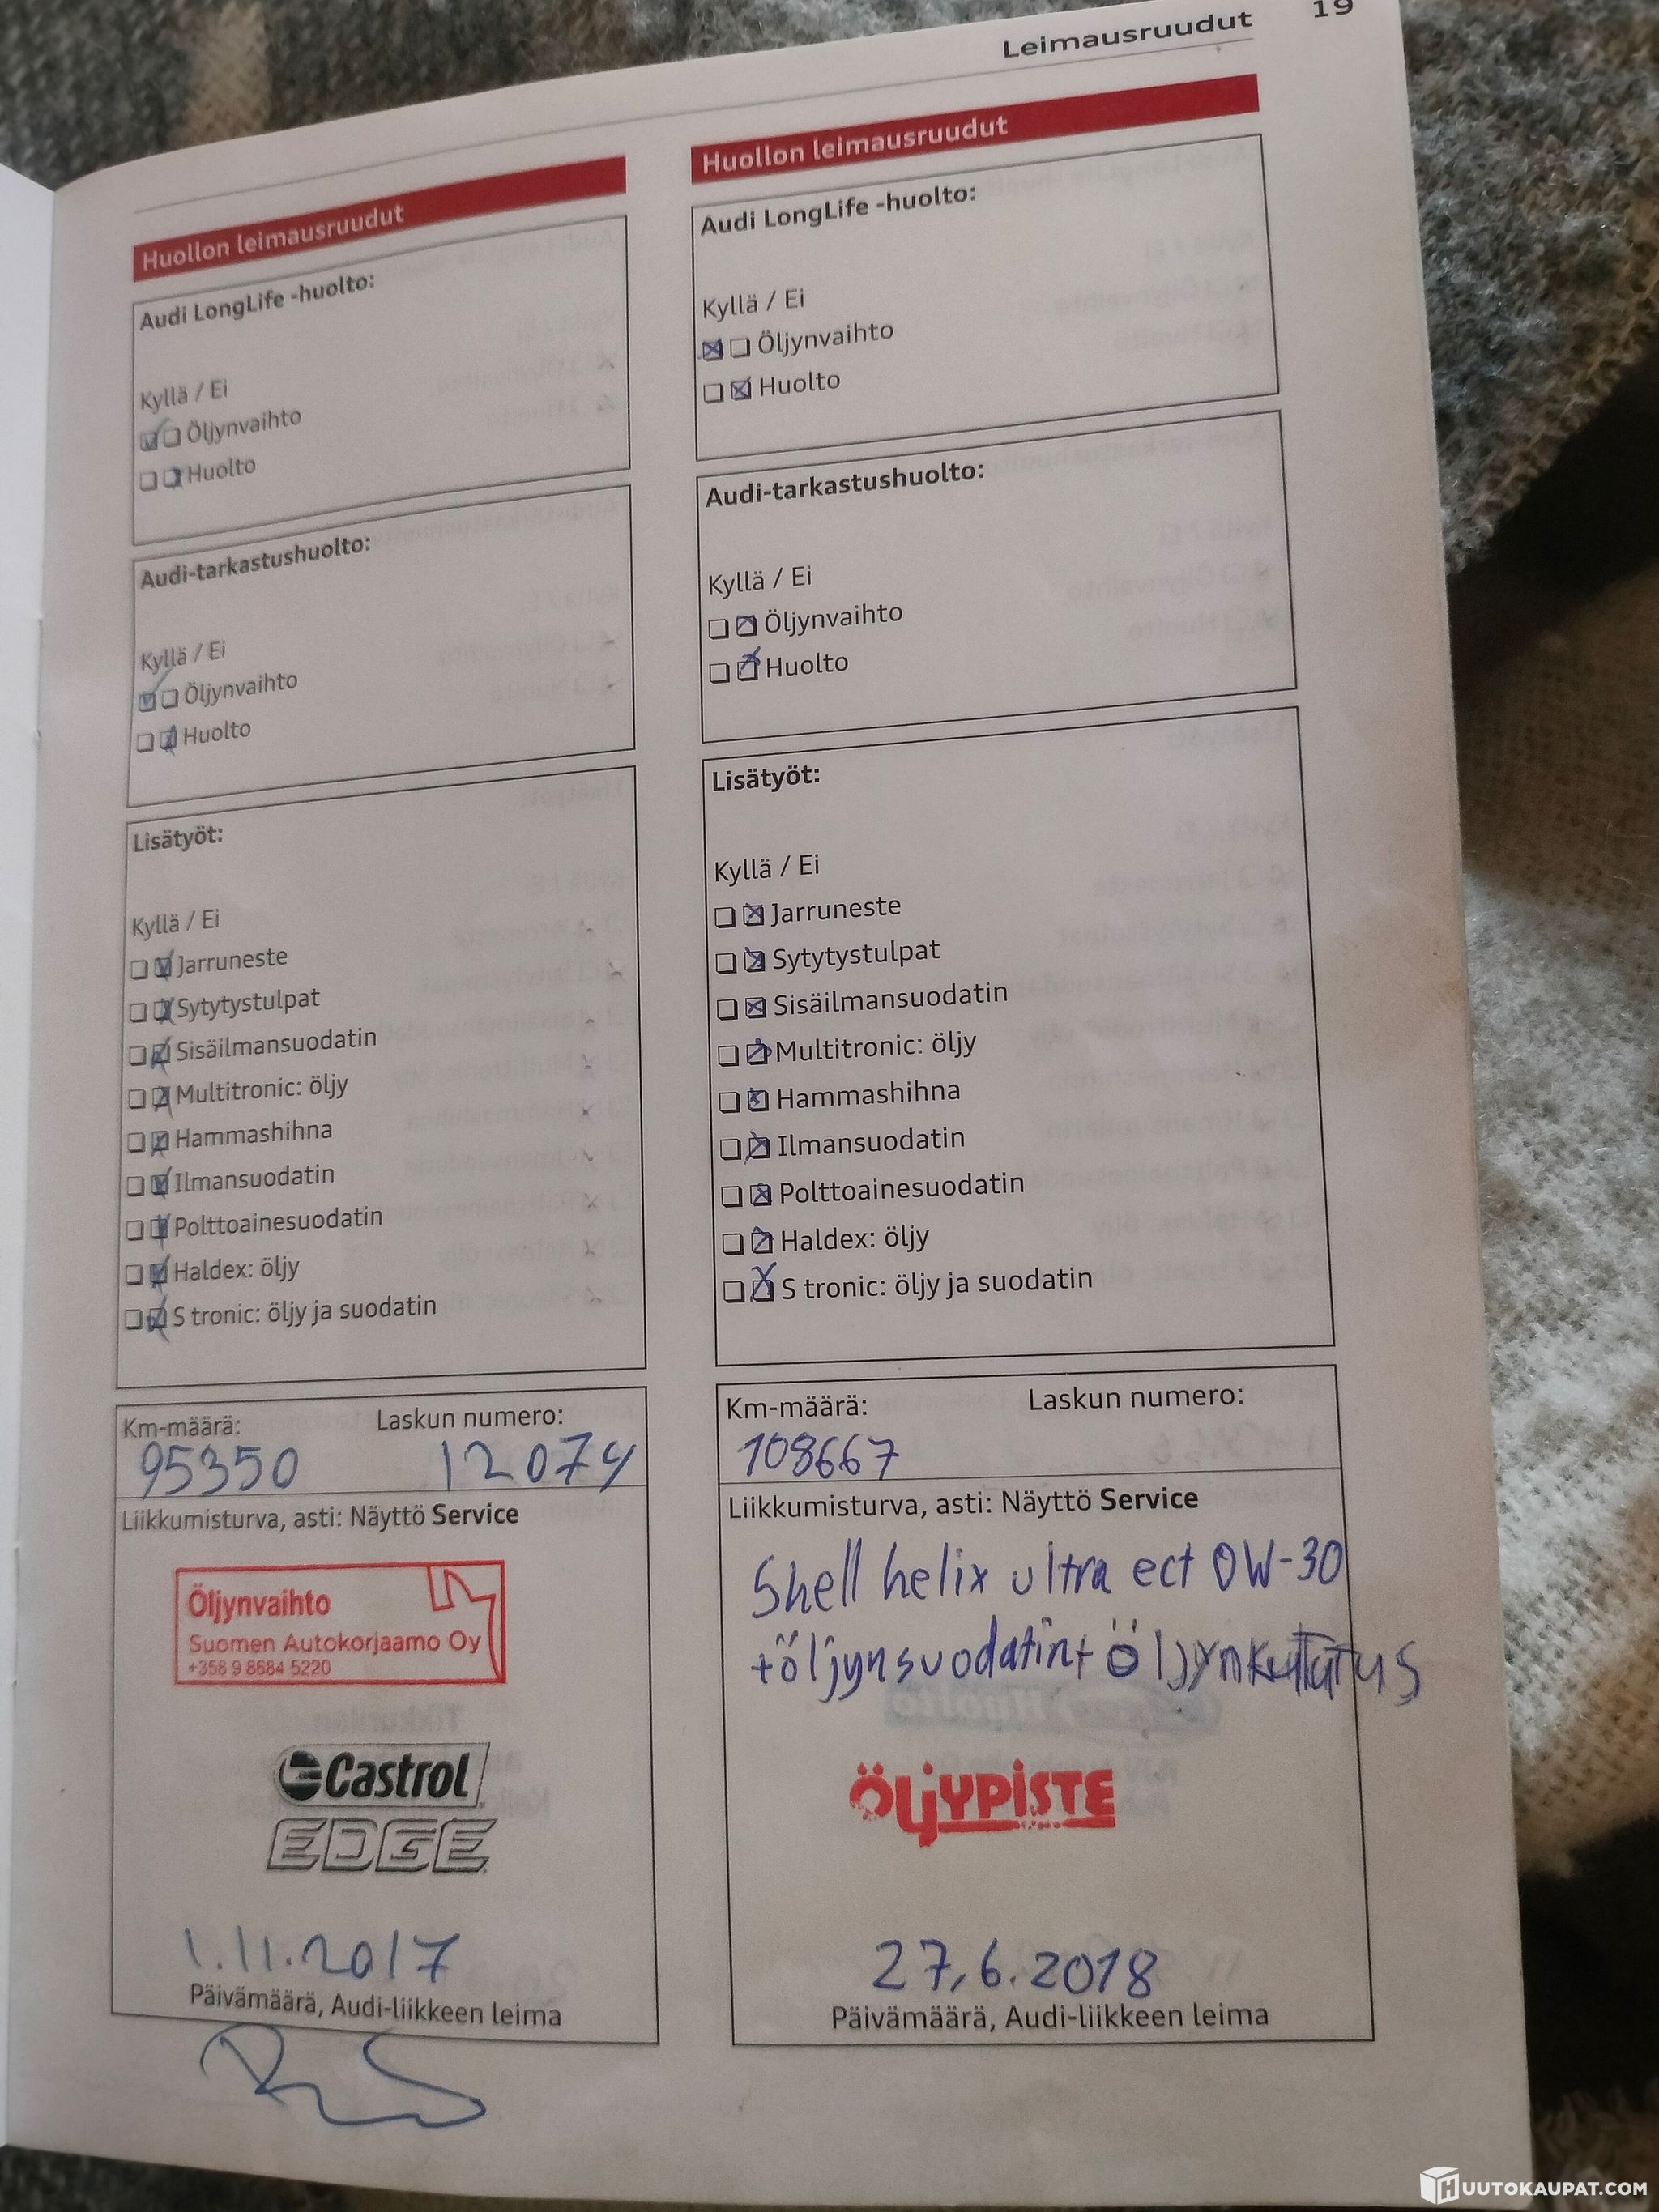 Leimausruudut 19
Huollon leimausruudut
Audi LongLife -huolto:
Kyllä / Ei
Öljynvaihto
Huolto
Audi-tarkastushuolto:
Kyllä / Ei
Öljynvaihto
Huolto
Lisätyöt:
Kyllä / Ei
Jarruneste
Sytytystulpat
Sisäilmansuodatin
Multitronic: öljy
Hammashihna
Ilmansuodatin
Polttoainesuodatin
Haldex: öljy
S tronic: öljy ja suodatin
Km-määrä: Laskun numero:
95350 12074
Liikkumisturva, asti: Näyttö Service
Öljynvaihto
Suomen Autokorjaamo Oy
+358 9 8684 5220
Castrol
EDGE
1.11.2017
Päivämäärä, Audi-liikkeen leima
Huollon leimausruudut
Audi LongLife -huolto:
Kyllä / Ei
Öljynvaihto
Huolto
Audi-tarkastushuolto:
Kyllä / Ei
Öljynvaihto
Huolto
Lisätyöt:
Kyllä / Ei
Jarruneste
Sytytystulpat
Sisäilmansuodatin
Multitronic: öljy
Hammashihna
Ilmansuodatin
Polttoainesuodatin
Haldex: öljy
S tronic: öljy ja suodatin
Km-määrä: Laskun numero:
108667
Liikkumisturva, asti: Näyttö Service
Shell helix ultra ect 0W-30
+öljynsuodatin+
ÖLJYPISTE
27.6.2018
Päivämäärä, Audi-liikkeen leima
HUUTOKAUPAT.COM